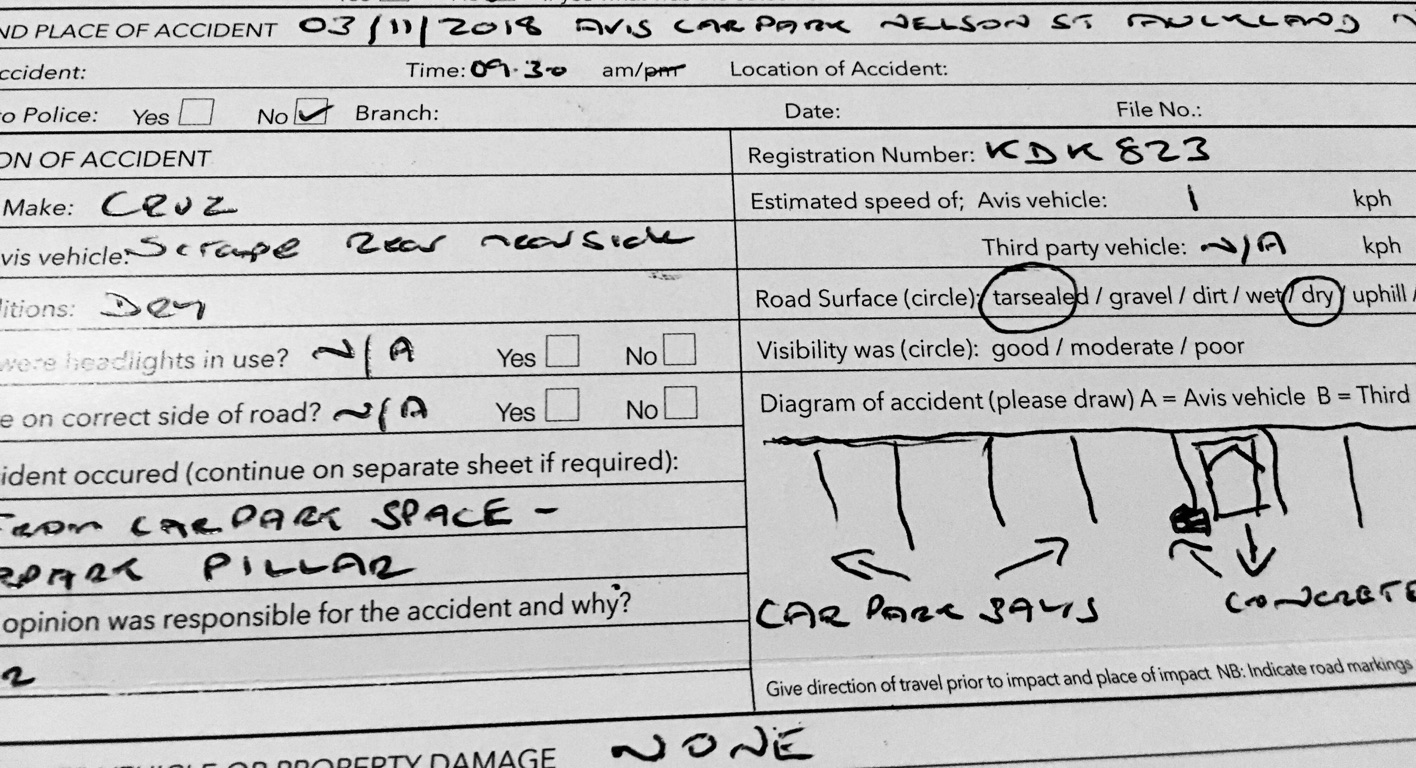 ND PLACE OF ACCIDENT 03/11/2018 AVIS CAR PARK NELSON ST AUCKLAND N
ccident: Time: 09.30 am/pm Location of Accident:
o Police: Yes No Branch: Date: File No.:
ON OF ACCIDENT
Registration Number: KDK 823
Make: CRUZ
Estimated speed of; Avis vehicle: 1 kph
vis vehicle: Scrape Rear nearside
Third party vehicle: N/A kph
itions: DRY
Road Surface (circle): tarsealed / gravel / dirt / wet / dry / uphill /
were headlights in use? N/A Yes No
Visibility was (circle): good / moderate / poor
e on correct side of road? N/A Yes No
Diagram of accident (please draw) A = Avis vehicle B = Third
ident occured (continue on separate sheet if required):
FROM CAR PARK SPACE -
RPARK PILLAR
CAR PARK BAYS
CONCRETE
opinion was responsible for the accident and why?
Give direction of travel prior to impact and place of impact NB: Indicate road markings
VEHICLE OR PROPERTY DAMAGE NONE